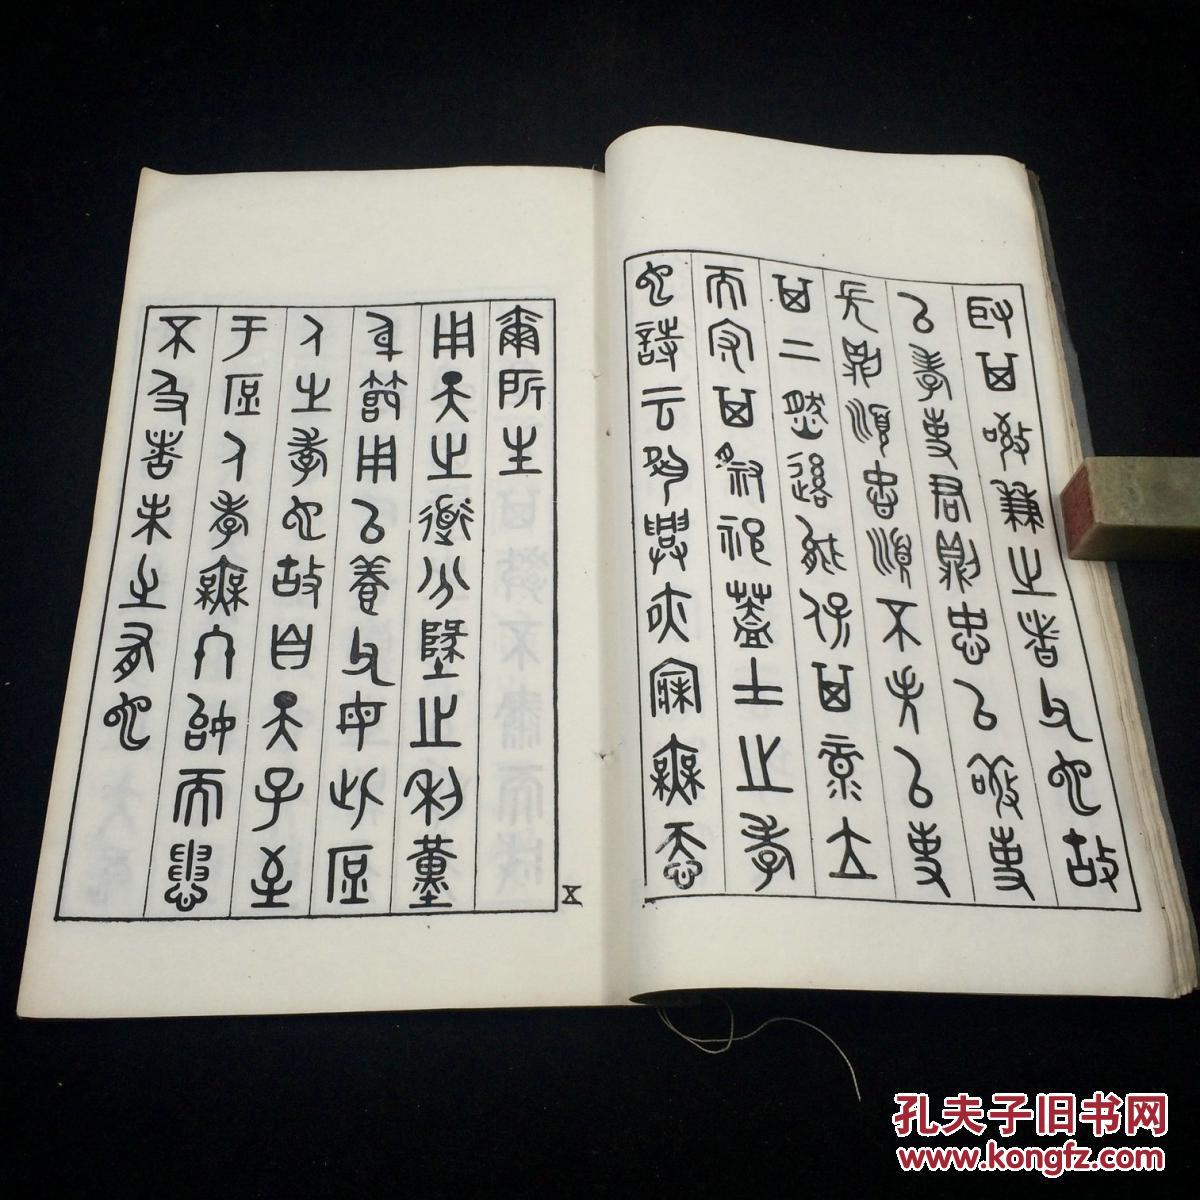 取其敬兼之者父也故
以孝事君則忠以敬事
長則順忠順不失以事
其上然後能保其祿位
而守其祭祀蓋士之孝
也詩云夙興夜寐無忝
爾所生
用天之道分地之利謹
身節用以養父母此庶
人之孝也故自天子至
于庶人孝無終始而患
不及者未之有也
五
孔夫子旧书网
www.kongfz.com